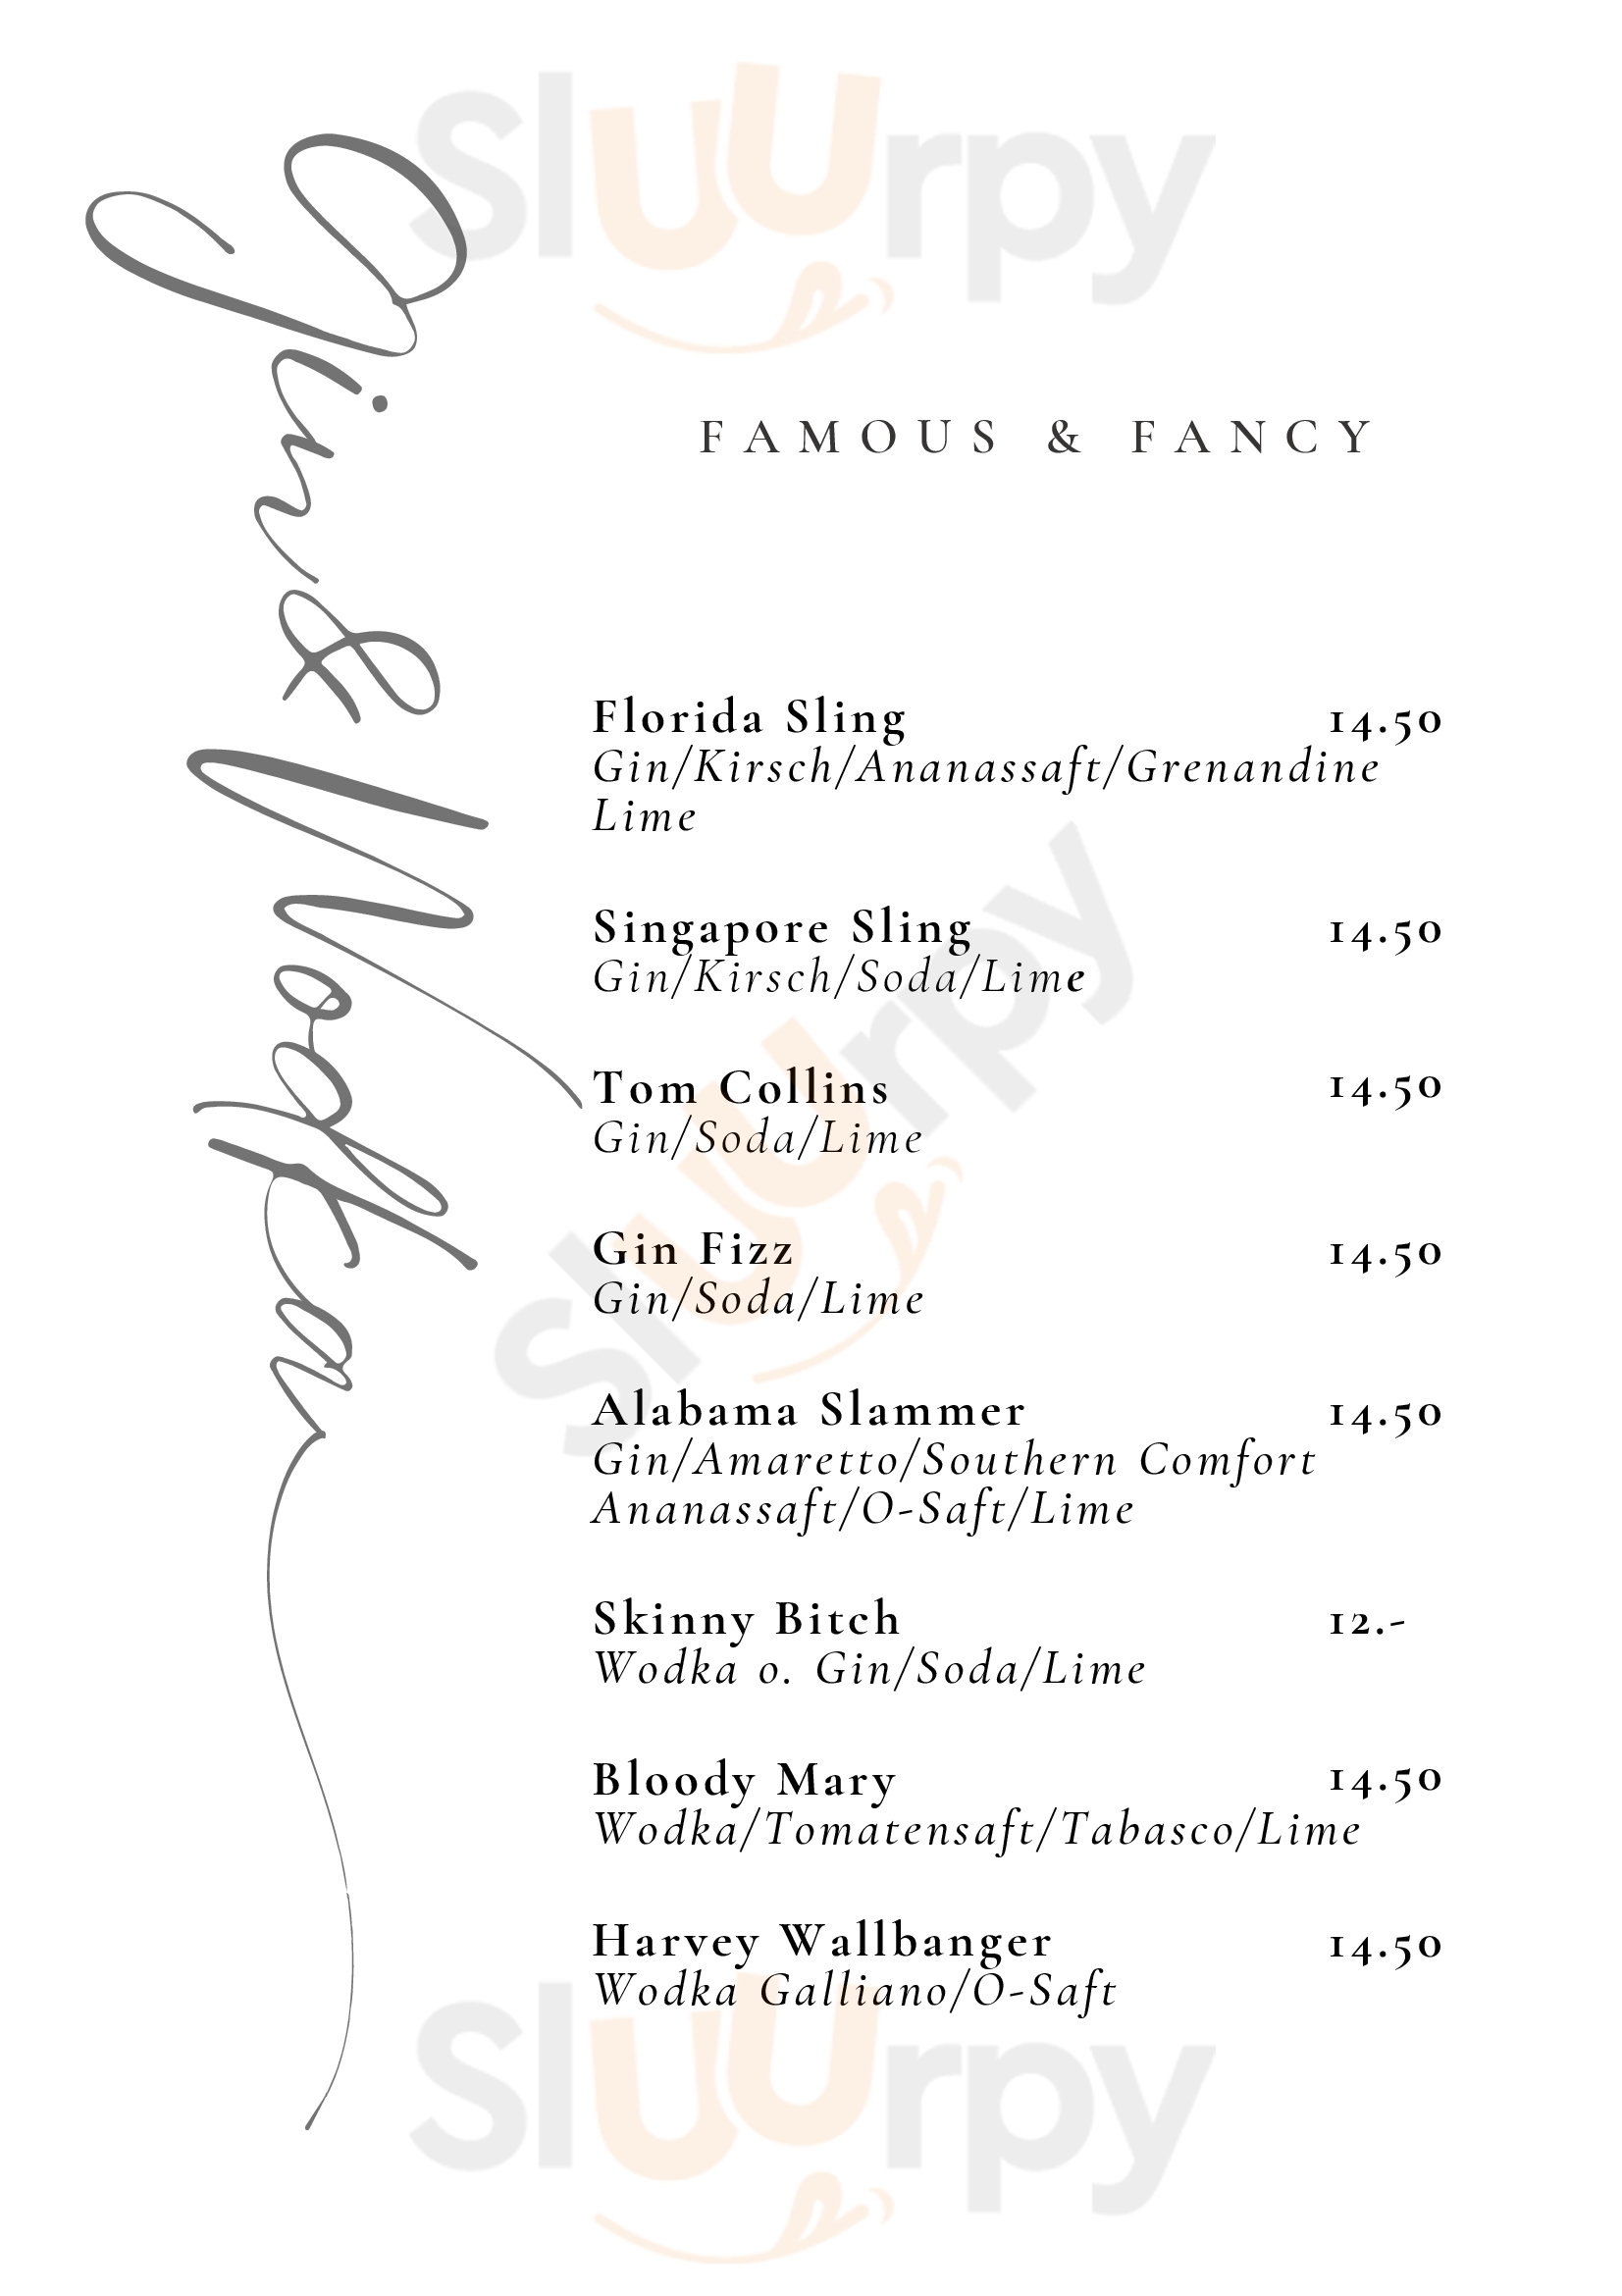 Sluurpy
Gin & Wodka
FAMOUS & FANCY
Florida Sling 14.50
Gin/Kirsch/Ananassaft/Grenandine
Lime
Singapore Sling 14.50
Gin/Kirsch/Soda/Lime
Sluurpy
Tom Collins 14.50
Gin/Soda/Lime
Gin Fizz 14.50
Gin/Soda/Lime
Alabama Slammer 14.50
Gin/Amaretto/Southern Comfort
Ananassaft/O-Saft/Lime
Skinny Bitch 12.-
Wodka o. Gin/Soda/Lime
Bloody Mary 14.50
Wodka/Tomatensaft/Tabasco/Lime
Harvey Wallbanger 14.50
Wodka Galliano/O-Saft
Sluurpy